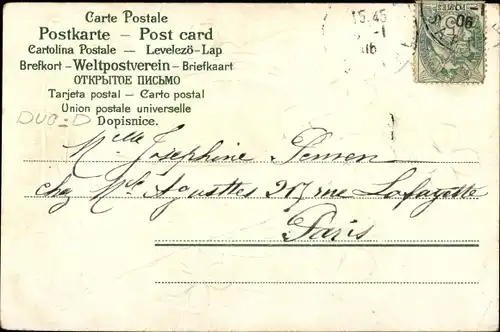 Carte Postale
Postkarte – Post card
Cartolina Postale – Levelező-Lap
Brefkort – Weltpostverein – Briefkaart
ОТКРЫТОЕ ПИСЬМО
Tarjeta postal – Carto postal
Union postale universelle
Dopisnice.
DUO-D
15.45
06
Mlle Josephine
chez Mr 217 rue Lafayette
Paris